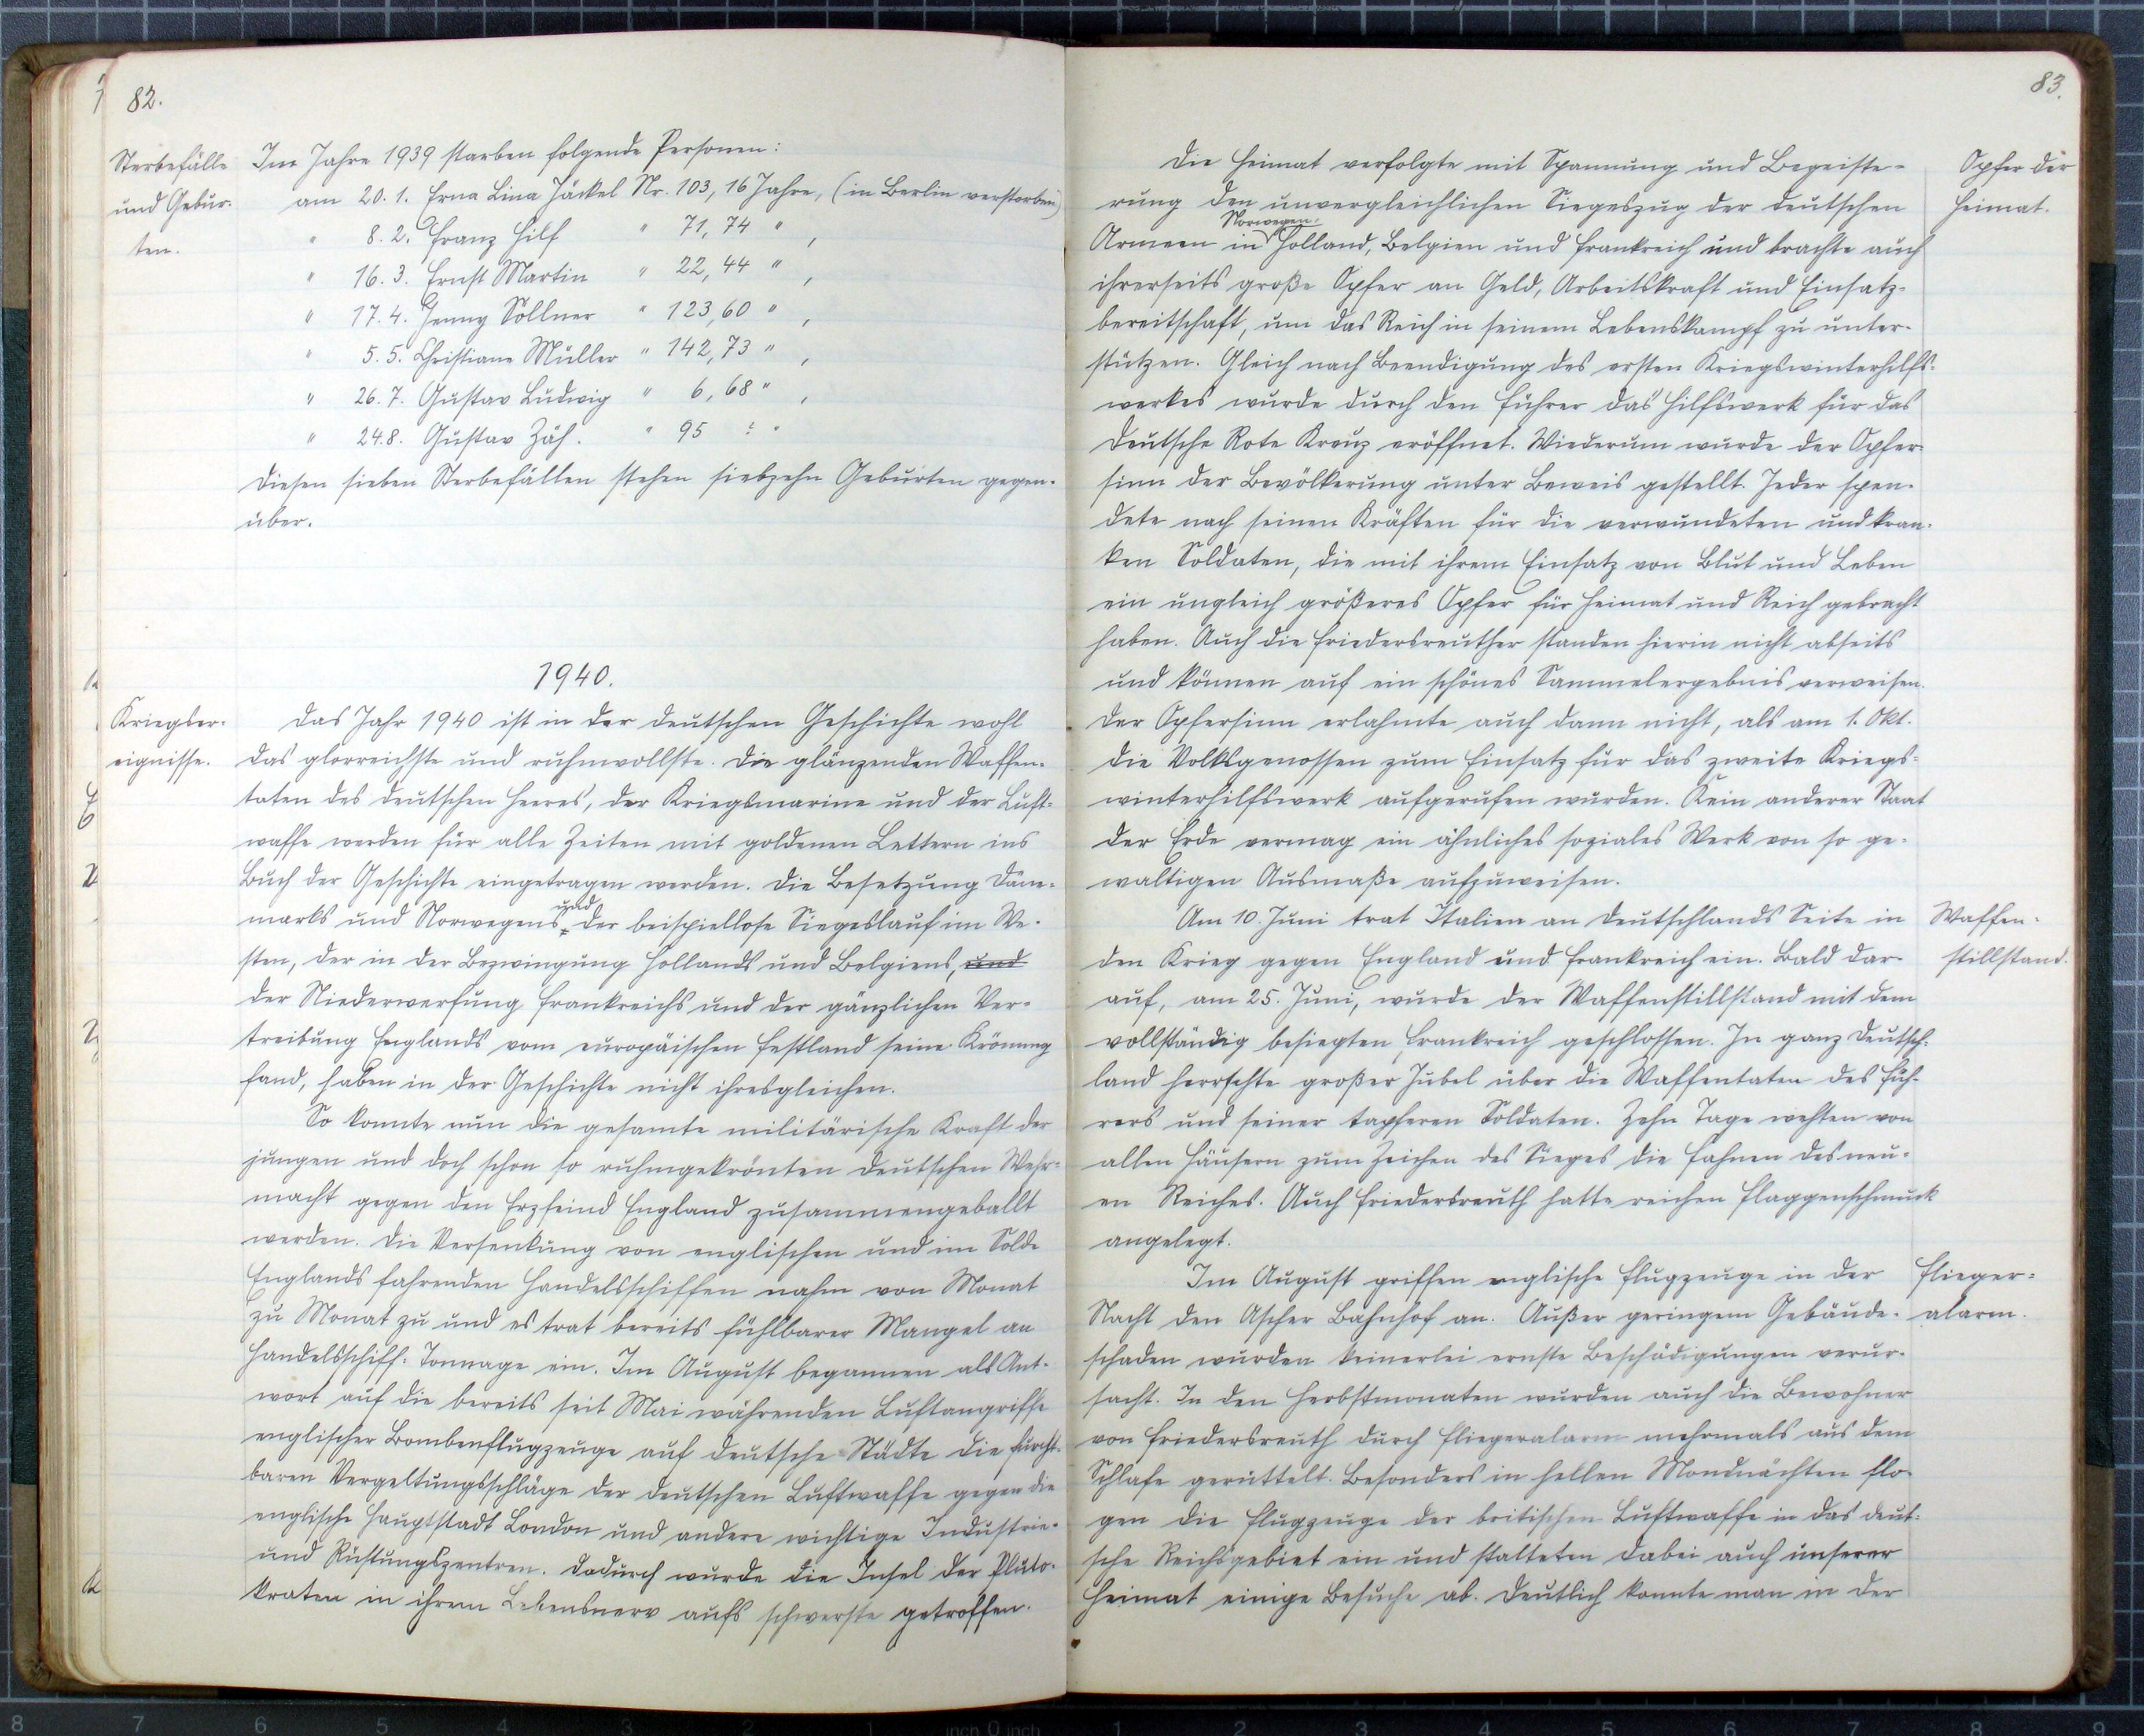 82.
Sterbefälle
und Gebur-
ten.
Im Jahre 1939 starben folgende Personen:
am 20. 1. Erna Lina Jäckel Nr. 103, 16 Jahre, (in Berlin verstorben)
" 8. 2. Franz Hilf " 71, 74 " ,
" 16. 3. Ernst Martin " 22, 44 " ,
" 17. 4. Jenny Söllner " 123, 60 " ,
" 5. 5. Christiane Müller " 142, 73 " ,
" 26. 7. Gustav Ludwig " 6, 68 " ,
" 24. 8. Gustav Zäh. " 95 ? "
Diesen sieben Sterbefällen stehen siebzehn Geburten gegen-
über.
1940.
Kriegser-
eignisse.
Das Jahr 1940 ist in der deutschen Geschichte wohl
das glorreichste und ruhmvollste. Die glänzenden Waffen-
taten des deutschen Heeres, der Kriegsmarine und der Luft-
waffe werden für alle Zeiten mit goldenen Lettern ins
Buch der Geschichte eingetragen werden. Die Besetzung Däne-
marks und Norwegens und der beispiellose Siegeslauf im We-
sten, der in der Bezwingung Hollands und Belgiens, und
der Niederwerfung Frankreichs und der gänzlichen Ver-
treibung Englands vom europäischen Festland seine Krönung
fand, haben in der Geschichte nicht ihresgleichen.
So konnte nun die gesamte militärische Kraft der
jungen und doch schon so ruhmgekrönten deutschen Wehr-
macht gegen den Erzfeind England zusammengeballt
werden. Die Versenkung von englischen und im Solde
Englands fahrenden Handelsschiffen nahm von Monat
zu Monat zu und es trat bereits fühlbarer Mangel an
Handelsschiff-Tonnage ein. Im August begannen als Ant-
wort auf die bereits seit Mai währenden Luftangriffe
englischer Bombenflugzeuge auf deutsche Städte die furcht-
baren Vergeltungsschläge der deutschen Luftwaffe gegen die
englische Hauptstadt London und andere wichtige Industrie-
und Rüstungszentren. Dadurch wurde die Insel der Pluto-
kraten in ihrem Lebensnerv aufs schwerste getroffen.
83.
Opfer der
Heimat.
Die Heimat verfolgte mit Spannung und Begeiste-
rung den unvergleichlichen Siegeszug der deutschen
Armeen in Norwegen, Holland, Belgien und Frankreich und brachte auch
ihrerseits große Opfer an Geld, Arbeitskraft und Einsatz-
bereitschaft, um das Reich in seinem Lebenskampf zu unter-
stützen. Gleich nach Beendigung des ersten Kriegswinterhilfs-
werkes wurde durch den Führer das Hilfswerk für das
Deutsche Rote Kreuz eröffnet. Wiederum wurde der Opfer-
sinn der Bevölkerung unter Beweis gestellt. Jeder spen-
dete nach seinen Kräften für die verwundeten und kran-
ken Soldaten, die mit ihrem Einsatz von Blut und Leben
ein ungleich größeres Opfer für Heimat und Reich gebracht
haben. Auch die Friedersreuther standen hierin nicht abseits
und können auf ein schönes Sammelergebnis verweisen.
Der Opfersinn erlahmte auch dann nicht, als am 1. Okt.
die Volksgenossen zum Einsatz für das zweite Kriegs-
winterhilfswerk aufgerufen wurden. Kein anderer Staat
der Erde vermag ein ähnliches soziales Werk von so ge-
waltigen Ausmaße aufzuweisen.
Am 10. Juni trat Italien an Deutschlands Seite in
den Krieg gegen England und Frankreich ein. Bald dar-
auf, am 25. Juni, wurde der Waffenstillstand mit dem
vollständig besiegten Frankreich geschlossen. In ganz Deutsch-
land herrschte großer Jubel über die Waffentaten des Füh-
rers und seiner tapferen Soldaten. Zehn Tage wehten von
allen Häusern zum Zeichen des Sieges die Fahnen des neu-
en Reiches. Auch Friedersreuth hatte reichen Flaggenschmuck
angelegt.
Waffen-
stillstand.
Im August griffen englische Flugzeuge in der
Nacht den Ascher Bahnhof an. Außer geringem Gebäude-
schaden wurden keinerlei ernste Beschädigungen verur-
sacht. In den Herbstmonaten wurden auch die Bewohner
von Friedersreuth durch Fliegeralarm mehrmals aus dem
Schlafe gerüttelt. Besonders in hellen Mondnächten flo-
gen die Flugzeuge der britischen Luftwaffe in das deut-
sche Reichsgebiet ein und statteten dabei auch unserer
Heimat einige Besuche ab. Deutlich konnte man in der
Flieger-
alarm.
8 7 6 5 4 3 2 1 inch 0 inch 1 2 3 4 5 6 7 8 9